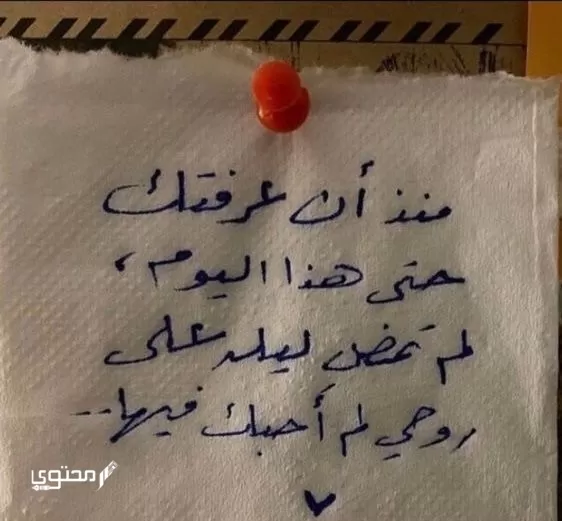 منذ أن عرفتك
حتى هذا اليوم ،
لم تمض ليلة على
روحي لم أحبك فيها..
محتوى